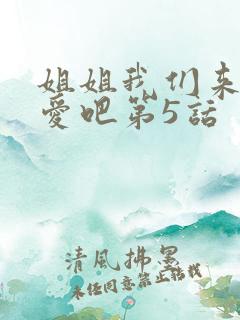 姐姐我们来
愛吧第5話
清風拂墨
未経同意禁止轉載